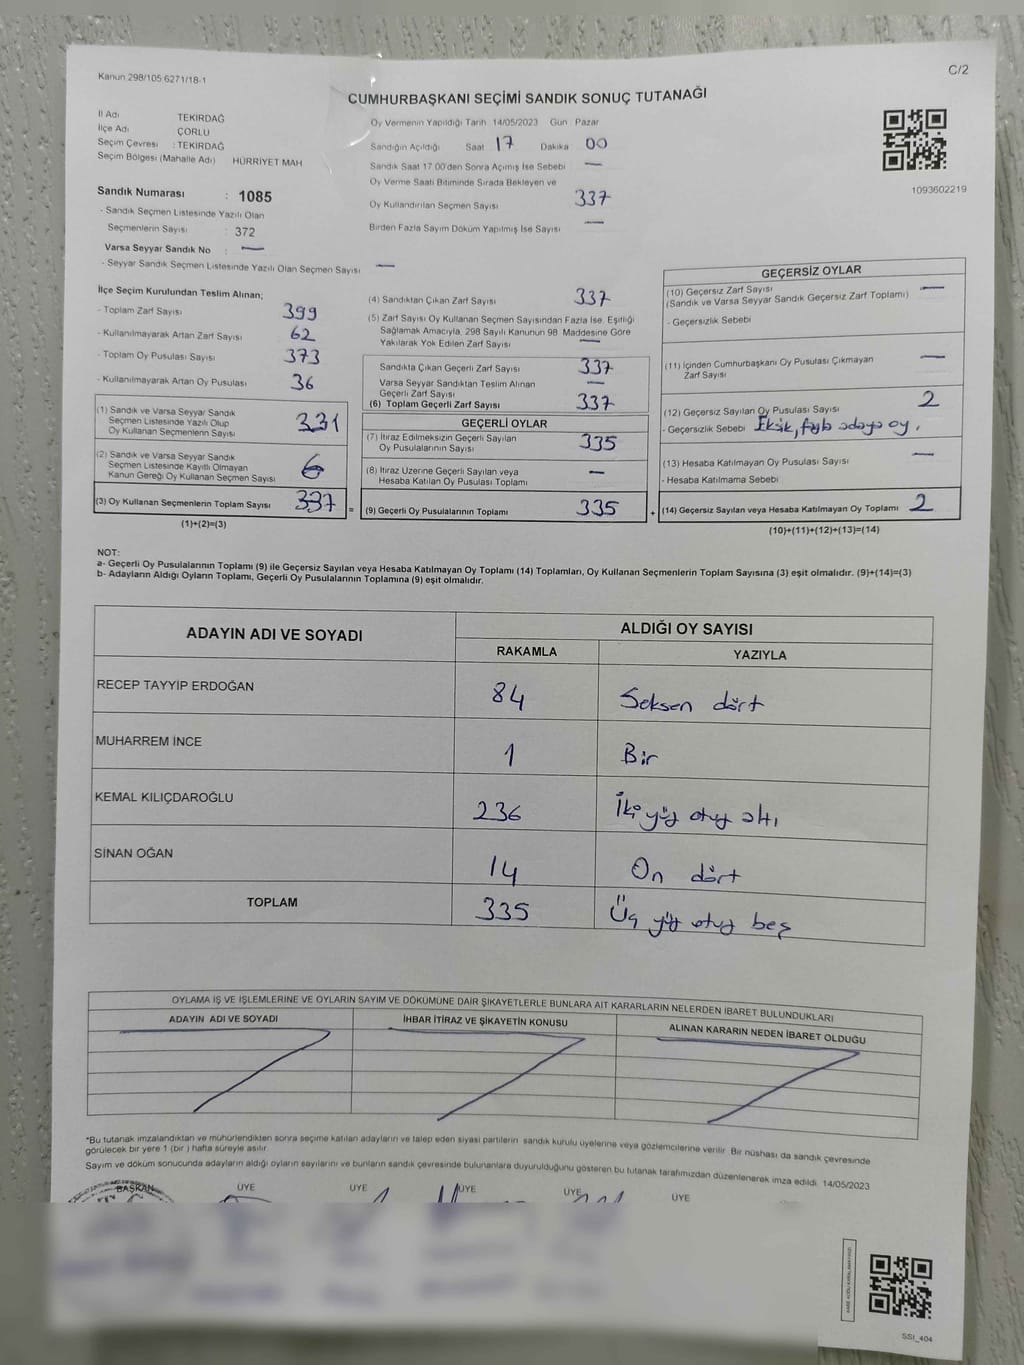 Kanun 298/105 6271/18-1
C/2
CUMHURBAŞKANI SEÇİMİ SANDIK SONUÇ TUTANAĞI
İl Adı TEKİRDAĞ
İlçe Adı ÇORLU
Seçim Çevresi : TEKİRDAĞ
Seçim Bölgesi (Mahalle Adı) HÜRRİYET MAH
Oy Vermenin Yapıldığı Tarih 14/05/2023 Gün Pazar
Sandığın Açıldığı Saat 17 Dakika 00
Sandık Saat 17.00'den Sonra Açılmış İse Sebebi —
Oy Verme Saati Bitiminde Sırada Bekleyen ve
Oy Kullandırılan Seçmen Sayısı 337
Birden Fazla Sayım Döküm Yapılmış İse Sayısı —
1093602219
Sandık Numarası : 1085
- Sandık Seçmen Listesinde Yazılı Olan
Seçmenlerin Sayısı : 372
Varsa Seyyar Sandık No : —
- Seyyar Sandık Seçmen Listesinde Yazılı Olan Seçmen Sayısı —
İlçe Seçim Kurulundan Teslim Alınan;
- Toplam Zarf Sayısı 399
- Kullanılmayarak Artan Zarf Sayısı 62
- Toplam Oy Pusulası Sayısı 373
- Kullanılmayarak Artan Oy Pusulası 36
(1) Sandık ve Varsa Seyyar Sandık
Seçmen Listesinde Yazılı Olup
Oy Kullanan Seçmenlerin Sayısı 331
(2) Sandık ve Varsa Seyyar Sandık
Seçmen Listesinde Kayıtlı Olmayan
Kanun Gereği Oy Kullanan Seçmen Sayısı 6
(3) Oy Kullanan Seçmenlerin Toplam Sayısı 337 =
(1)+(2)=(3)
(4) Sandıktan Çıkan Zarf Sayısı 337
(5) Zarf Sayısı Oy Kullanan Seçmen Sayısından Fazla İse, Eşitliği
Sağlamak Amacıyla, 298 Sayılı Kanunun 98 Maddesine Göre
Yakılarak Yok Edilen Zarf Sayısı —
Sandıkta Çıkan Geçerli Zarf Sayısı 337
Varsa Seyyar Sandıktan Teslim Alınan
Geçerli Zarf Sayısı —
(6) Toplam Geçerli Zarf Sayısı 337
GEÇERLİ OYLAR
(7) İtiraz Edilmeksizin Geçerli Sayılan
Oy Pusulasının Sayısı 335
(8) İtiraz Üzerine Geçerli Sayılan veya
Hesaba Katılan Oy Pusulası Toplamı —
(9) Geçerli Oy Pusulalarının Toplamı 335 +
GEÇERSİZ OYLAR
(10) Geçersiz Zarf Sayısı —
(Sandık ve Varsa Seyyar Sandık Geçersiz Zarf Toplamı)
- Geçersizlik Sebebi
(11) İçinden Cumhurbaşkanı Oy Pusulası Çıkmayan
Zarf Sayısı —
(12) Geçersiz Sayılan Oy Pusulası Sayısı 2
- Geçersizlik Sebebi Eksik, fazla adaya oy.
(13) Hesaba Katılmayan Oy Pusulası Sayısı —
- Hesaba Katılmama Sebebi
(14) Geçersiz Sayılan veya Hesaba Katılmayan Oy Toplamı 2
(10)+(11)+(12)+(13)=(14)
NOT:
a- Geçerli Oy Pusulalarının Toplamı (9) ile Geçersiz Sayılan veya Hesaba Katılmayan Oy Toplamı (14) Toplamları, Oy Kullanan Seçmenlerin Toplam Sayısına (3) eşit olmalıdır. (9)+(14)=(3)
b- Adayların Aldığı Oyların Toplamı, Geçerli Oy Pusulalarının Toplamına (9) eşit olmalıdır.
ADAYIN ADI VE SOYADI ALDIĞI OY SAYISI
RAKAMLA YAZIYLA
RECEP TAYYİP ERDOĞAN 84 Seksen dört
MUHARREM İNCE 1 Bir
KEMAL KILIÇDAROĞLU 236 İki yüz otuz altı
SİNAN OĞAN 14 On dört
TOPLAM 335 Üç yüz otuz beş
OYLAMA İŞ VE İŞLEMLERİNE VE OYLARIN SAYIM VE DÖKÜMÜNE DAİR ŞİKAYETLERLE BUNLARA AİT KARARLARIN NELERDEN İBARET BULUNDUKLARI
ADAYIN ADI VE SOYADI İHBAR İTİRAZ VE ŞİKAYETİN KONUSU ALINAN KARARIN NEDEN İBARET OLDUĞU
*Bu tutanak imzalandıktan ve mühürlendikten sonra seçime katılan adayların ve talep eden siyasi partilerin sandık kurulu üyelerine veya gözlemcilerine verilir. Bir nüshası da sandık çevresinde
görülecek bir yere 1 (bir ) hafta süreyle asılır.
Sayım ve döküm sonucunda adayların aldığı oyların sayılarını ve bunların sandık çevresinde bulunanlara duyurulduğunu gösteren bu tutanak tarafımızdan düzenlenerek imza edildi. 14/05/2023
BAŞKAN ÜYE ÜYE ÜYE ÜYE ÜYE
SSI_404